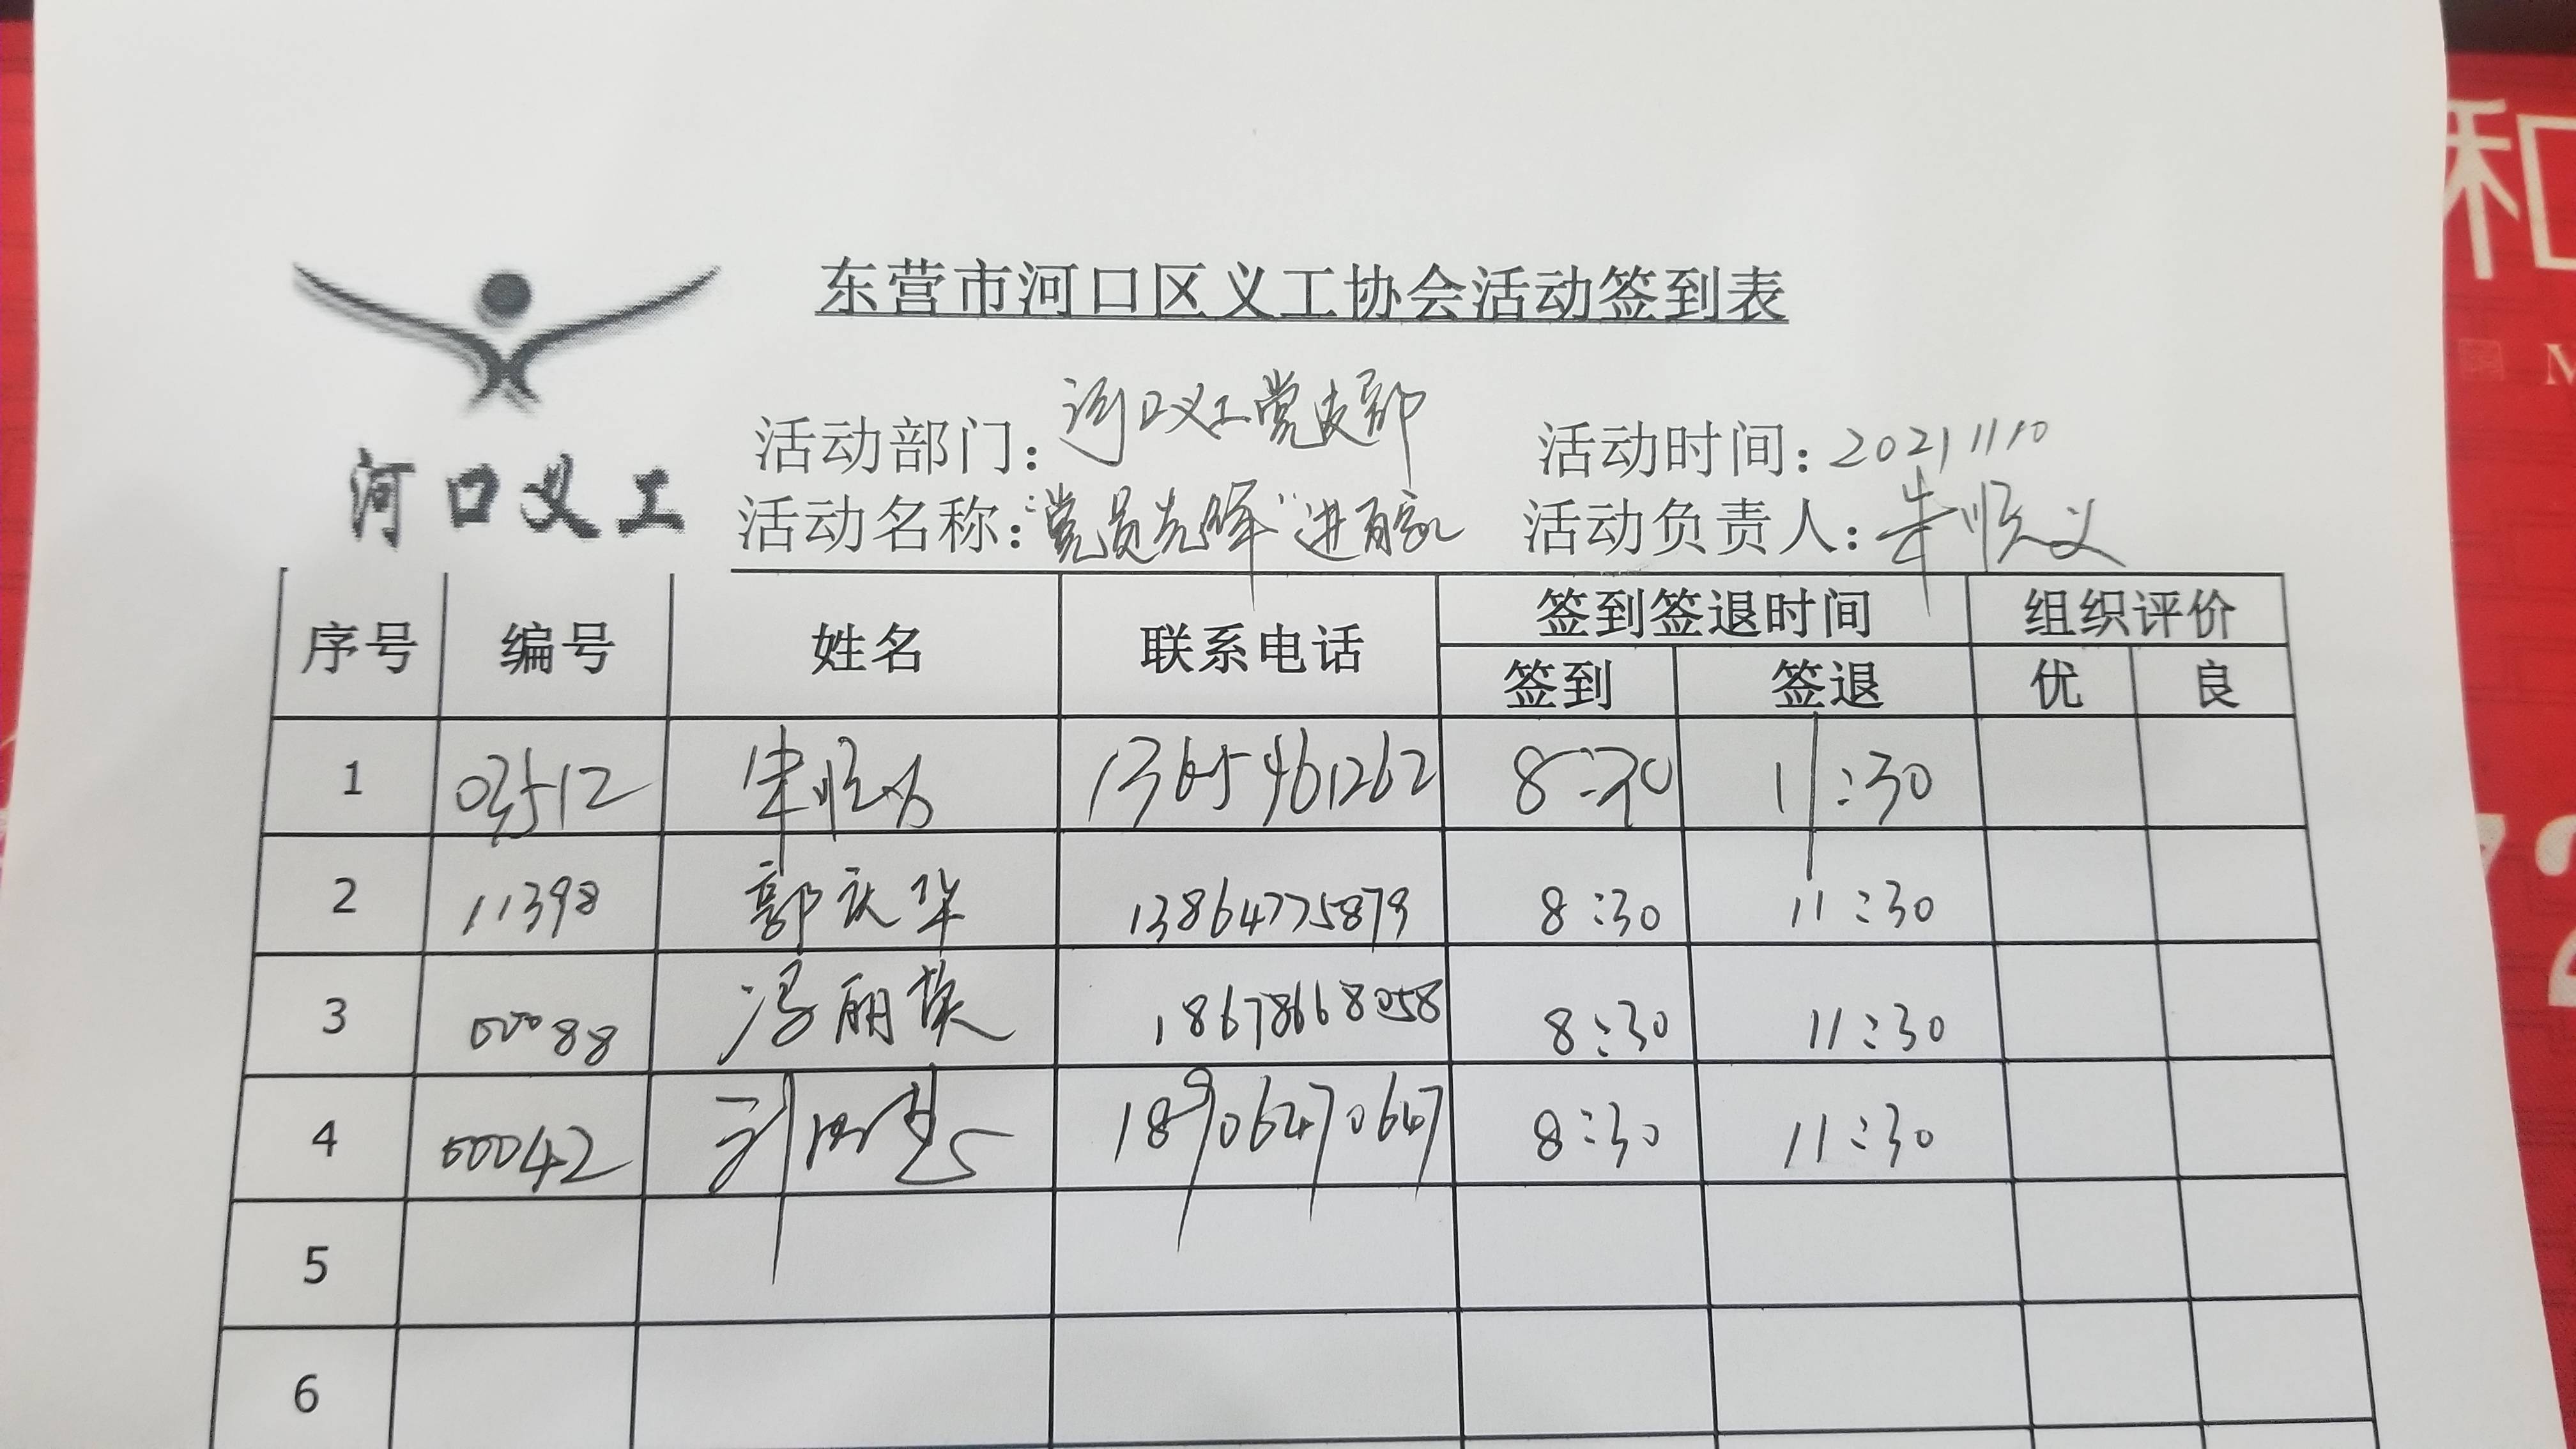 东营市河口区义工协会活动签到表
河口义工
活动部门：河口义工党支部 活动时间：20211110
活动名称：“党员先锋”进百家 活动负责人：朱顺义
序号 编号 姓名 联系电话 签到签退时间 组织评价
签到 签退 优 良
1 03512 朱顺义 13654961262 8:30 11:30
2 11398 郭庆华 13864775879 8:30 11:30
3 00088 冯丽英 18678668058 8:30 11:30
4 00042 刘 18906470647 8:30 11:30
5
6
和
M